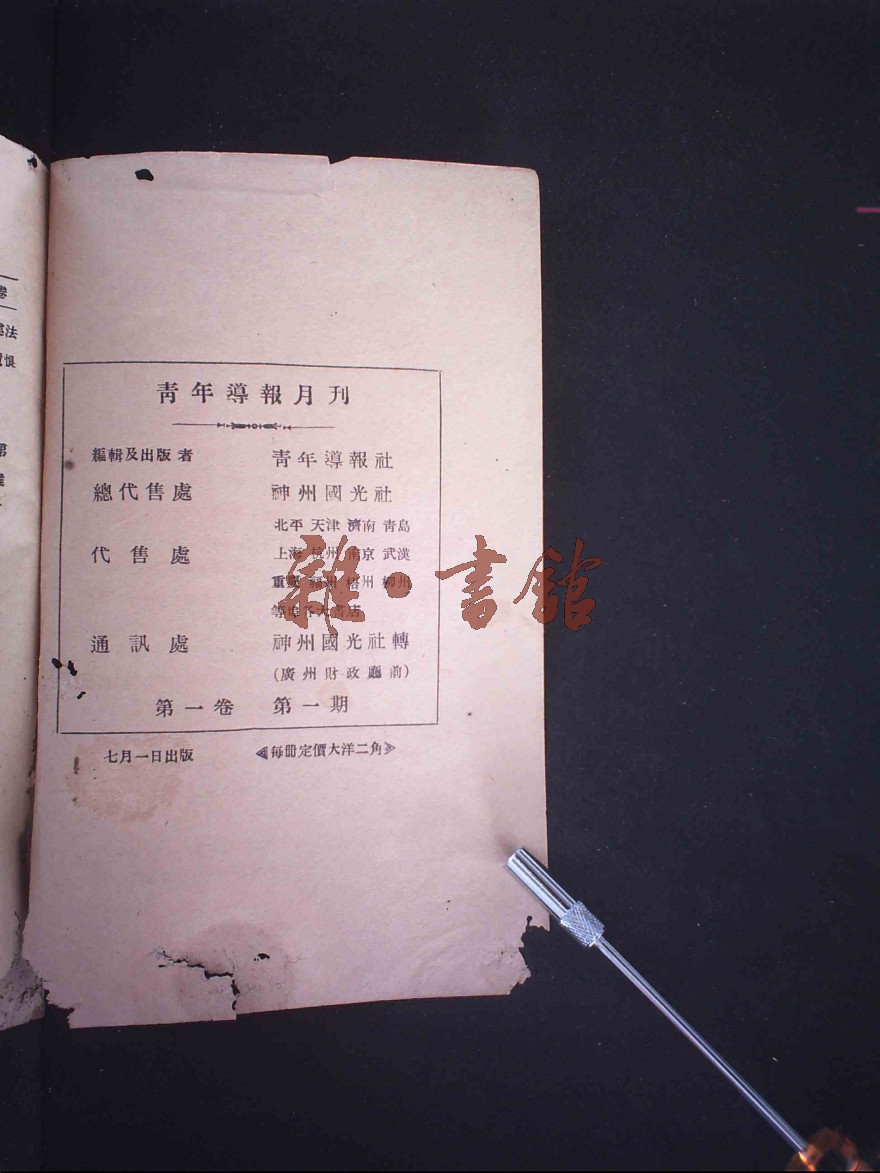 青年導報月刊
編輯及出版者 青年導報社
總代售處 神州國光社
北平 天津 濟南 青島
代售處 上海 杭州 南京 武漢
重慶 福州 梧州 柳州
等埠各大書店
通訊處 神州國光社轉
(廣州財政廳前)
第一卷 第一期
七月一日出版 ⟪每冊定價大洋二角⟫
雜·書館
法
惧
第